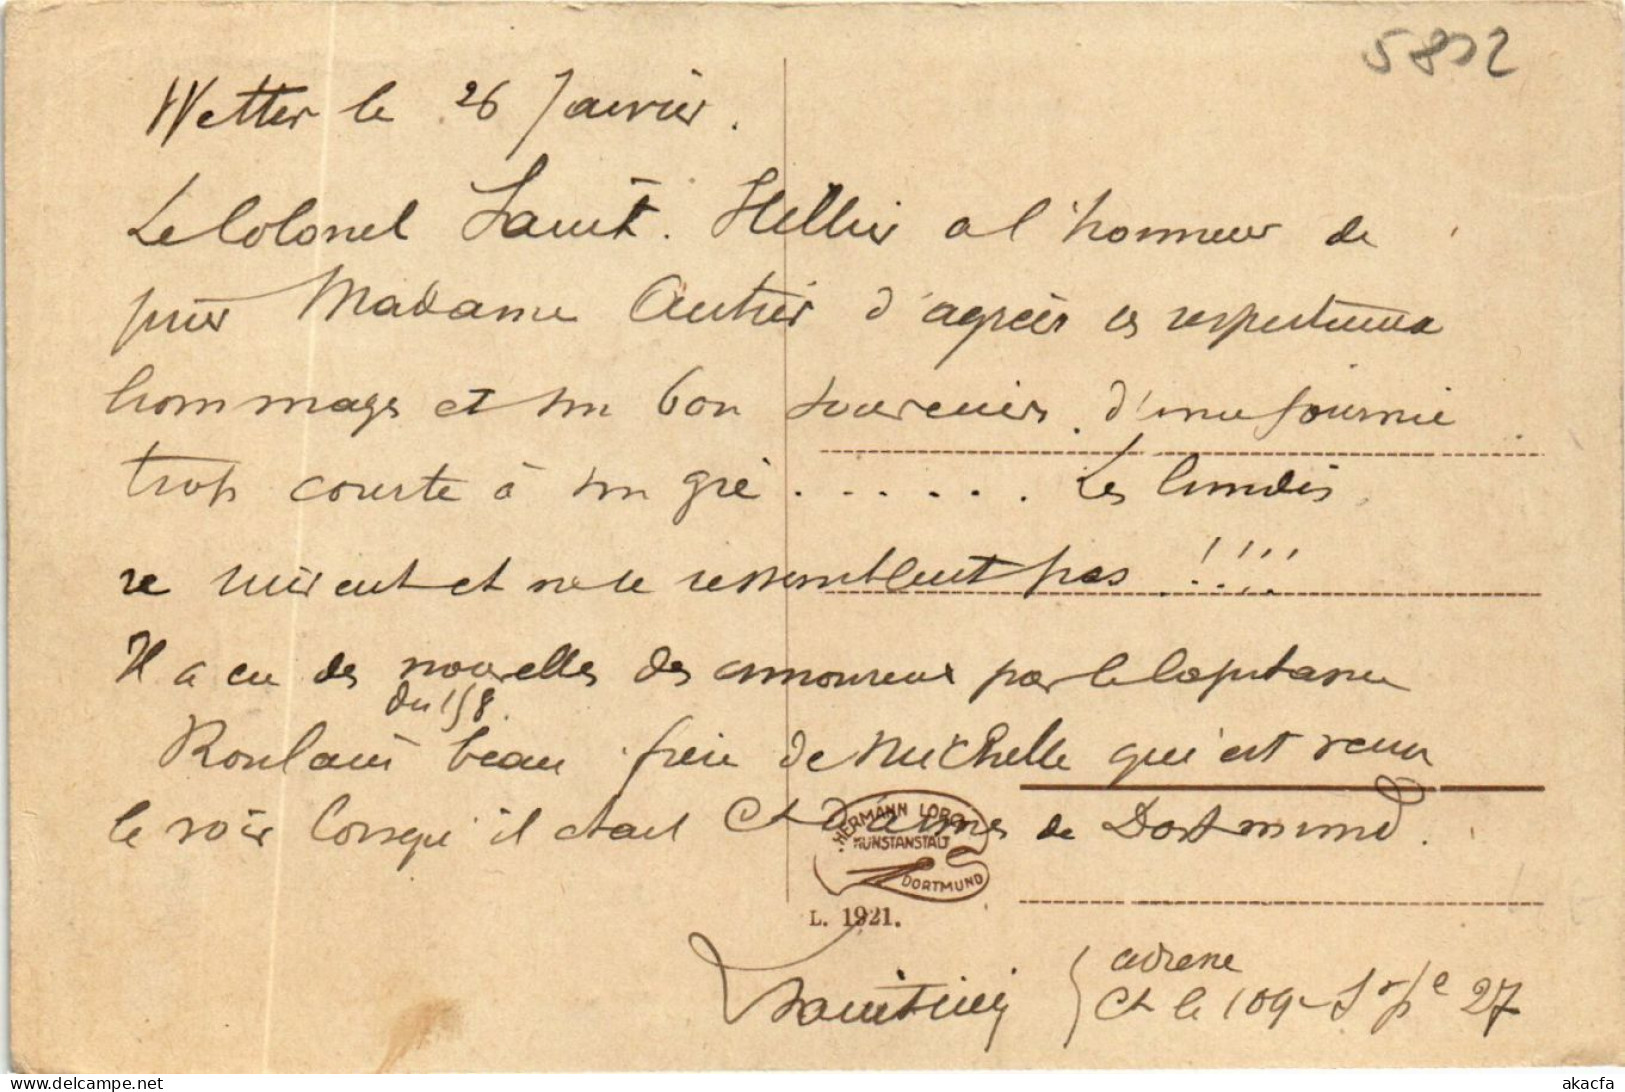 5802
Wetter le 26 Janvier.
Le Colonel Saint. Hellier a l'honneur de
prier Madame Autier d'agréer ses respectueux
hommages et son bon souvenir d'une journée
trop courte à son gré ....... Les lundis
se suivent et ne se ressemblent pas !!!!
Il a eu des nouvelles des amoureux par le Capitaine
du 158.
beau frère de Michelle qui est venu
le voir lorsqu'il était Ct d'armes de Dortmund.
HERMANN LORCH
KUNSTANSTALT
DORTMUND
L. 1921.
adresse
Ct le 109e Sr pe 27
akacfa